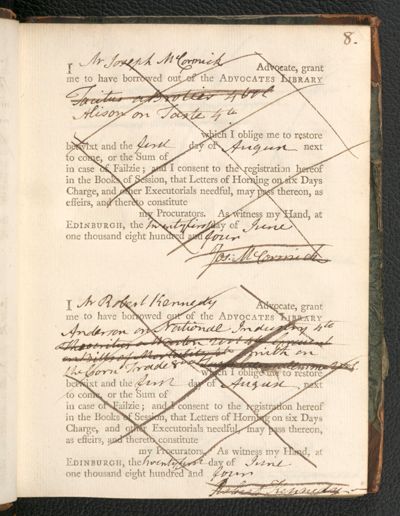 8.
I Mr Joseph McCormick Advocate, grant
me to have borrowed out of the ADVOCATES LIBRARY
Tacitus a Brotier 4 vol
Alison on Taste 4to
which I oblige me to restore
betwixt and the first day of August next
to come, or the Sum of
in case of Failzie; and I consent to the registration hereof
in the Books of Session, that Letters of Horning on six Days
Charge, and other Executorials needful, may pass thereon, as
effeirs, and thereto constitute
my Procurators. As witness my Hand, at
EDINBURGH, the twenty first day of June
one thousand eight hundred and four
Jos. McCormick
I Mr Robert Kennedy Advocate, grant
me to have borrowed out of the ADVOCATES LIBRARY
Anderson on National Industry 4to
on Bills of Mortality 4to Smith on
the Corn Trade 8vo
which I oblige me to restore
betwixt and the first day of August next
to come, or the Sum of
in case of Failzie; and I consent to the registration hereof
in the Books of Session, that Letters of Horning on six Days
Charge, and other Executorials needful, may pass thereon,
as effeirs, and thereto constitute
my Procurators. As witness my Hand, at
EDINBURGH, the twenty first day of June
one thousand eight hundred and four
Robert Kennedy